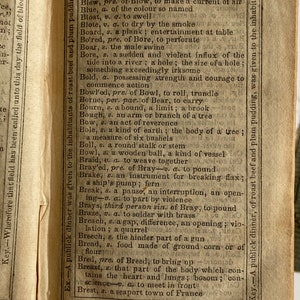 Blew, pre. of Blow, to make a current of air
Blue, a. of the colour so named
Blost, v. a. to swell
Bote, v. a. to dry by the smoke
Board, s. a plank; entertainment at table
Bored, pre. of Bore, to perforate
Boar, s. the male swine
Bore, s. a sudden and violent influx of the
tide into a river; a hole; the size of a hole
something exceedingly irksome
Bold, a. possessing strength and courage to
commence action
Bowled, pre. of Bowl, to roll, trundle
Borne, per. par. of Bear, to carry
Bourn, s. a bound, a limit; a brook
Bough, s. an arm or branch of a tree
Bow, s. an act of reverence
Bole, s. a kind of earth; the body of a tree;
a measure of six bushels
Boll, s. a round stalk or stem
Bowl, s. a wooden ball, a kind of vessel
Braid, v. a. to weave together
Bray'ed, pre. of Bray—v. a. to pound
Brake, s. an instrument for breaking flax;
a ship's pump; fern
Break, s. a pause, an interruption, an open-
ing—v. a. to part by violence
Brays, third person sin. of Bray, to pound
Braze, v. a. to solder with brass
Breach, s. a gap, difference, an opening; vio-
lation; a quarrel
Breech, s. the hinder part of a gun
Bread, s. food made of ground corn or of
flour
Bred, pre. of Breed; to bring up
Breast, s. that part of the body which con-
tains the heart and lungs; bosom; con-
science—v. a. to meet in front
Brest, s. a seaport town of France
Key.—Wherefore that field has been called unto this day the field of blood
Ex.—A publick dinner was given to the inhabitants of
Key.—A publick dinner, of roast beef and plum pudding, was given to the inhabit